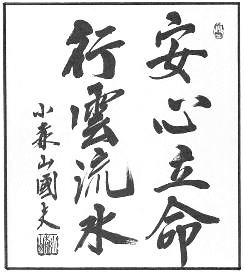 安心立命
行雲流水
小森山國夫